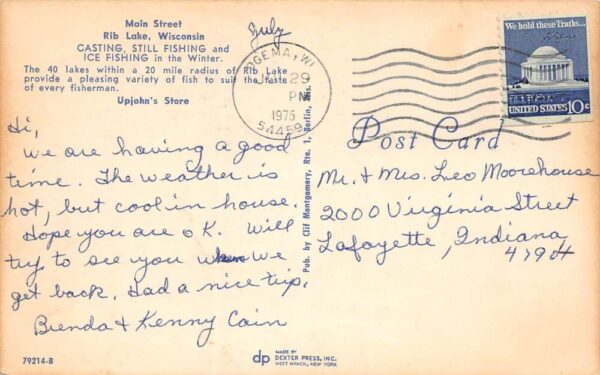 Main Street
Rib Lake, Wisconsin
CASTING, STILL FISHING and
ICE FISHING in the Winter.
The 40 lakes within a 20 mile radius of Rib Lake
provide a pleasing variety of fish to suit the taste
of every fisherman.
Upjohn's Store
July
OGEMA, WI
29
PM
1975
54459
We hold these Truths...
UNITED STATES 10c
Hi,
We are having a good
time. The weather is
hot, but cool in house.
Hope you are OK. Will
try to see you when we
get back. Had a nice trip.
Brenda & Kenny Cain
Pub. by Clif Montgomery, Rte. 1, Berlin, Wis.
Post Card
Mr. & Mrs. Leo Moorehouse
2000 Virginia Street
Lafayette, Indiana
47904
79214-B
dp MADE BY
DEXTER PRESS, INC.
WEST NYACK, NEW YORK